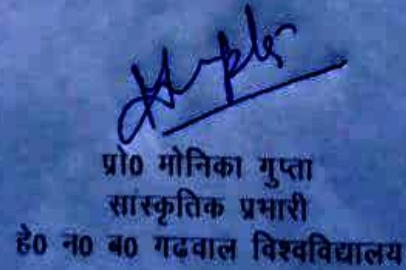 प्रो0 मोनिका गुप्ता
सांस्कृतिक प्रभारी
हे0 न0 ब0 गढवाल विश्वविद्यालय